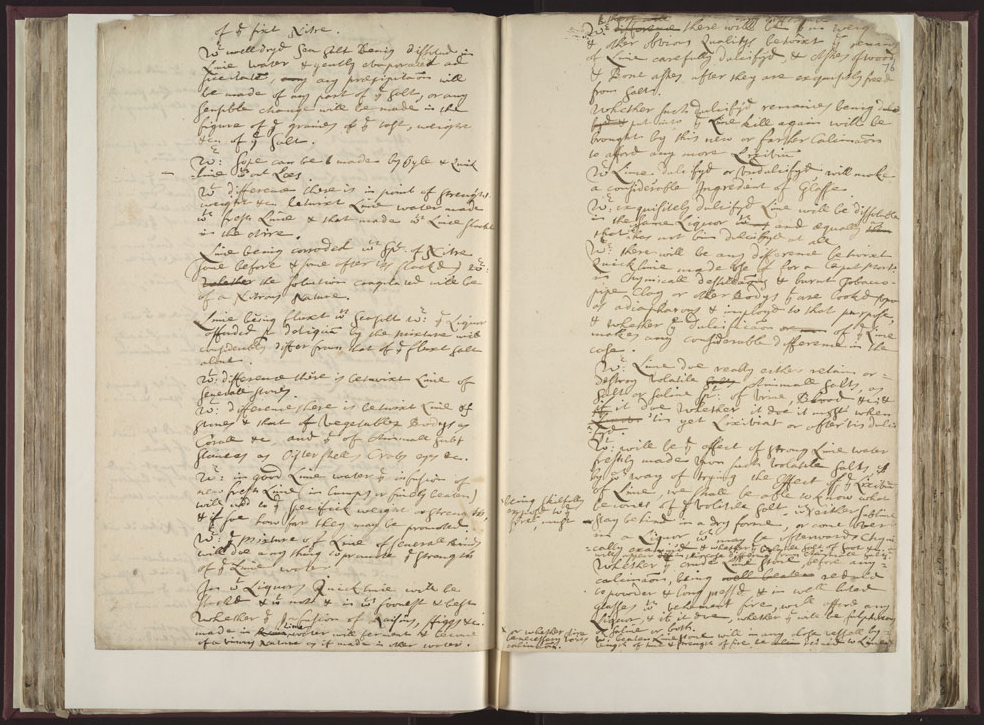 of ye fixt Nitre.
Wr. well dryd Sea salt being dissolvd in
Lime water & gently evaporated ad
any praecipitation will
be made of any part of ye salts, or any
sensible change will be made in the
figure of ye graines of ye salt, weight
&c. of ye Salt.
Wr: Sope can be made by Oyle & Quick
lime Lees.
Wr: difference there is in point of strength
weight &c betwixt Lime water made
wth fresh Lime & that made wth Lime slackt
in the aire.
Lime being corroded wth Spt. of Nitre
some before & some after its slackt) Wr:
the solution coagulated will be
of a Nitrous Nature.
Lime being fluxt wth Seasalt Wr: ye Liquor
afforded p deliquium by the mixture will
considerably differ from that of ye fluxt salt
alone.
Wr: difference there is betwixt Lime of
severall stones.
Wr: difference there is betwixt Lime of
stones & that of Vegetable Bodys as
Corall &c. and yt of Animall subs
stances as Oister shells Crabs eyes &c.
Wr: in good Lime water ye infusion of
new fresh Lime (in lumps or finely beaten)
will add to ye specifick weight or strength,
& if soe how far they may be promoted.
Wr: ye mixture of Lime of severall kinds
will doe any thing to promote ye strength
of ye Lime water.
In wt Liquors Quicklime will be
slackt & wt not & in wt soonest & best
Whether ye infusion of Raisins, ffiggs &c.
made in Lime water will ferment & become
of a vinous Nature as if made in other water.
76
difference there will be in weight
& other obvious Qualitys betwixt ye remains
of Lime carefully dulcifyd, & Ashes of wood,
& Bone ashes after they are exquisitly freed
from salts.
Whether such dulcifyd remaines being
put into ye Lime kill again will be
brought by this new or farther Calcination
to afford any more Lixivium
Wr Lime dulcifyd or undulcifyd will make
a considerable Ingredient of Glasse.
Wr: exquisitely dulcifyd Lime will be dissoluble
in the same Liquor and aequally
that has not bin dulcifyd at all
Wr: there will be any difference betwixt
Quicklime made use of for a Caput mort:
in Chymicall destillations & burnt Tobacco-
pipe Clay or other Bodys yt are lookd upon
as adiaphorous & imployd to that purpose,
& whether ye dulcification of ye Lime
makes any considerable difference in the
case.
Wr: Lime doe really either retain or
destroy volatile Animall salts, as
salts or saline spt: of Urine, Blood &c: &
if it doe Whether it doe it most when
tis yet Lixiviat or after tis dulci-
fyd.
Wt: will be ye effect of strong Lime water
freshly made upon such volatile salts, &
by ys way of trying the effect of ye Lixivium
of Lime, we shall be able to know what
becomes of ye volatile salt. Wr either sublime
stay behind in a dry forme, or come over
in a Liquor, wch may be afterwards Chymi-
cally examined
Whether ye crude Lime stone before any
calcination, being reduced
to powder & long pressd & in well luted
glasses wth vehement fire, will afford any
Liquor, & if it doe, whether yt will be sulphureous
or saline or both.
beaten Limestone will in any close vessell by
length of time & strength of fire, be reduced to Lime
being skilfully
exposed to ye
fire, must
or whether aire
be necessary to its
calcination.